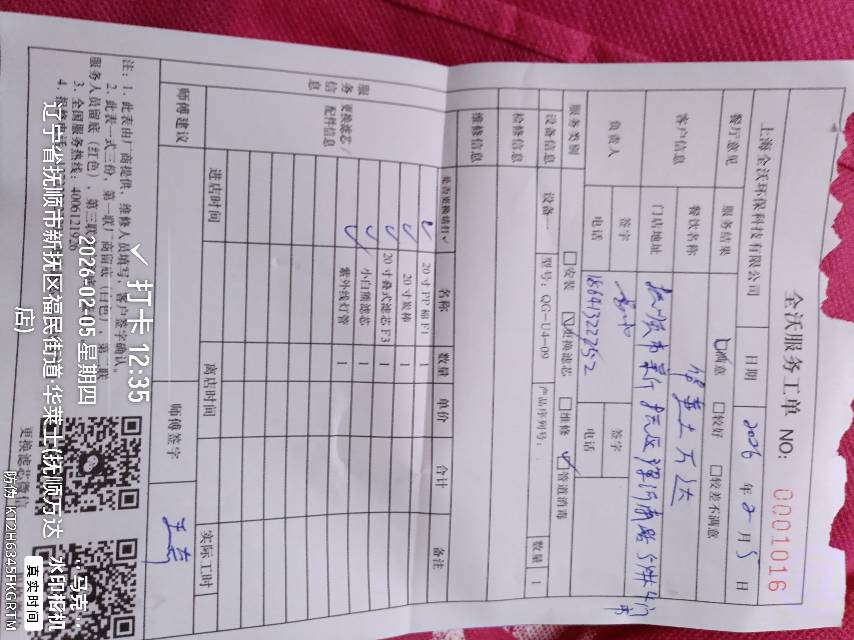 全沃服务工单 NO: 0001016
上海全沃环保科技有限公司 日期 2026 年 2 月 5 日
餐厅意见 服务结果 ☑满意 □较好 □较差不满意
客户信息 餐饮名称 华莱士万达
门店地址 抚顺市新抚区
负责人 签字 签字
电话 18641322252 电话
服务类别 □安装 ☑更换滤芯 □维修 ☑管道消毒
设备信息 设备一 型号：QG-U4-09 产品序列号： 数量 1
检修信息
维修信息
服务信息 更换滤芯/配件信息
是否更换请打✓ 名称 数量 单价 合计 备注
✓ 20寸PP棉F1 1
✓ 20寸炭棒 1
✓ 20寸叠式滤芯F3 1
✓ 小白熊滤芯 1
✓ 紫外线灯管 1
进店时间 离店时间 实际工时
师傅建议 师傅签字
注：1、此表由厂商提供，维修人员填写，客户签字确认。
2、此表一式三份，第一联厂商留底（白色），第二联
服务人员留底（红色），第三联
3、全国服务热线：4006121926
4、
更换滤芯微信
✓打卡 12:35
2026-02-05 星期四
辽宁省抚顺市新抚区福民街道·华莱士(抚顺万达店)
马克...
水印相机
真实时间
防伪 KT2H6345FKGRTM